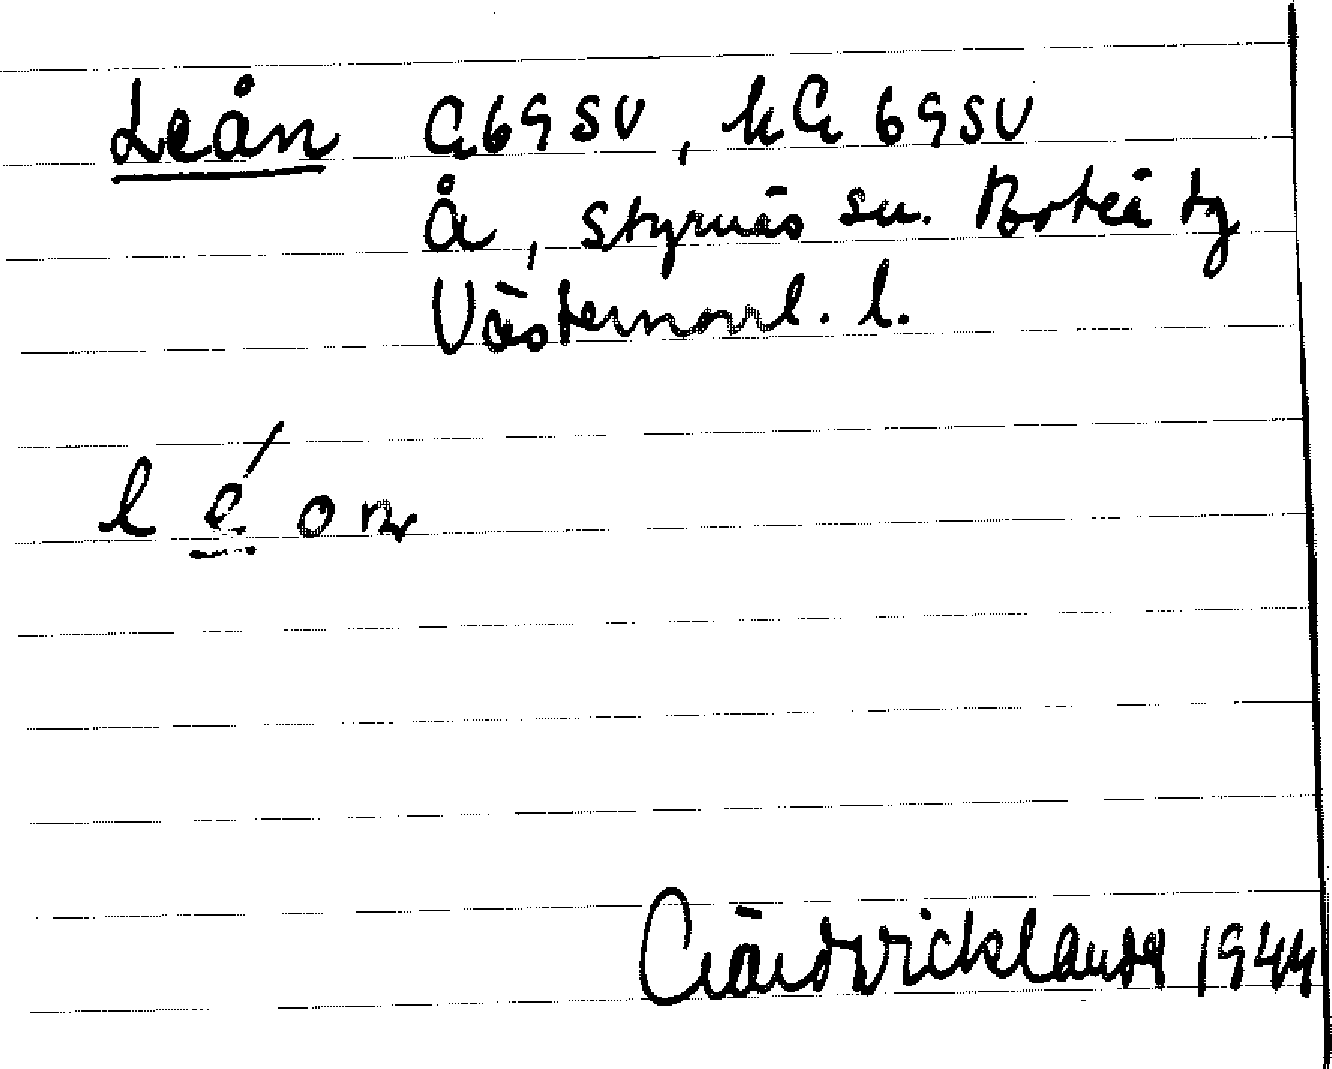 Leån G69SV, kG 69SV
Å, Styrnäs sn. Boteå tg
Västernorrl. l.
l é o n
Wicklander 1944